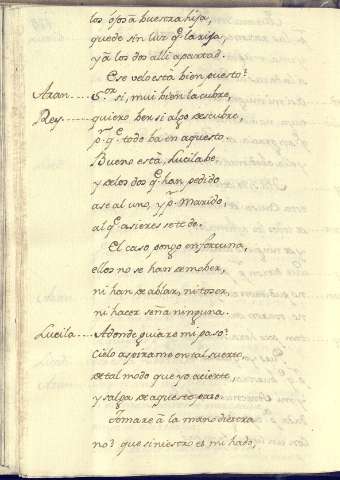 los ojos a vuestra hija,
quede sin luz q.e la rija,
y à los dos alli apartad.
Ese velo està bien puesto?
Aran..... S.or si, mui bien la cubre,
Rey...... quiero ver si algo descubre,
p.r q.e todo va en aquesto.
Bueno està, Lucila ve,
y de los dos q.e han pedido
ase al uno, y p.r marido,
al q.e asieres se te dè.
El caso pongo en fortuna,
ellos no se han de mober,
ni han de ablar, ni toser,
ni hacer seña ninguna.
Lucila.... Adonde guiarè mi paso?
Cielo aspirame en tal suerte,
de tal modo que yo acierte,
y salga de aqueste paso.
Tomarè à la mano diestra
no? que siniestro es mi hado,